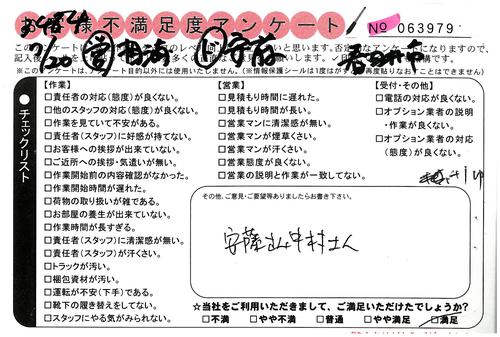 お客様不満足度アンケート
No 063979
7/20
春日井市
【作業】
□責任者の対応(態度)が良くない。
□他のスタッフの対応(態度)が良くない。
□作業を見ていて不安がある。
□責任者(スタッフ)に好感が持てない。
□お客様への挨拶が出来ていない。
□ご近所への挨拶・気遣いが無い。
□作業開始前の内容確認がなかった。
□作業開始時間が遅れた。
□荷物の取り扱いが雑である。
□お部屋の養生が出来ていない。
□作業時間が長すぎる。
□責任者(スタッフ)に清潔感が無い。
□責任者(スタッフ)が汗くさい。
□トラックが汚い。
□梱包資材が汚い。
□運転が不安(下手)である。
□靴下の履き替えをしてない。
□スタッフにやる気がみられない。
【営業】
□見積もり時間に遅れた。
□見積もり時間が長い。
□営業マンに清潔感が無い。
□営業マンが煙草くさい。
□営業マンが汗くさい。
□営業態度が良くない。
□営業の説明と作業が一致してない。
【受付・その他】
□電話の対応が良くない。
□オプション業者の説明
・作業が良くない。
□オプション業者の対応
(態度)が良くない。
チェックリスト
その他、ご意見・ご要望等ありましたらお書き下さい。
安藤さん中村さん
☆当社をご利用いただきまして、ご満足いただけたでしょうか?
□不満 □やや不満 □普通 □やや満足 ☑満足